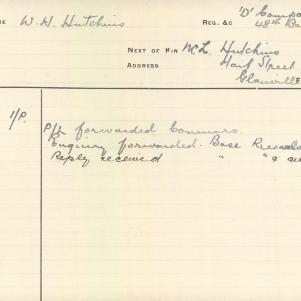 ME W. H. Hutchins REG. &C 'D' Compa
48th Ba
NEXT OF KIN Mr. L. Hutchins
ADDRESS Hart Street
Glanville
1/P. P/L forwarded Commrs.
Enquiry forwarded. Base Records
Reply received " " &